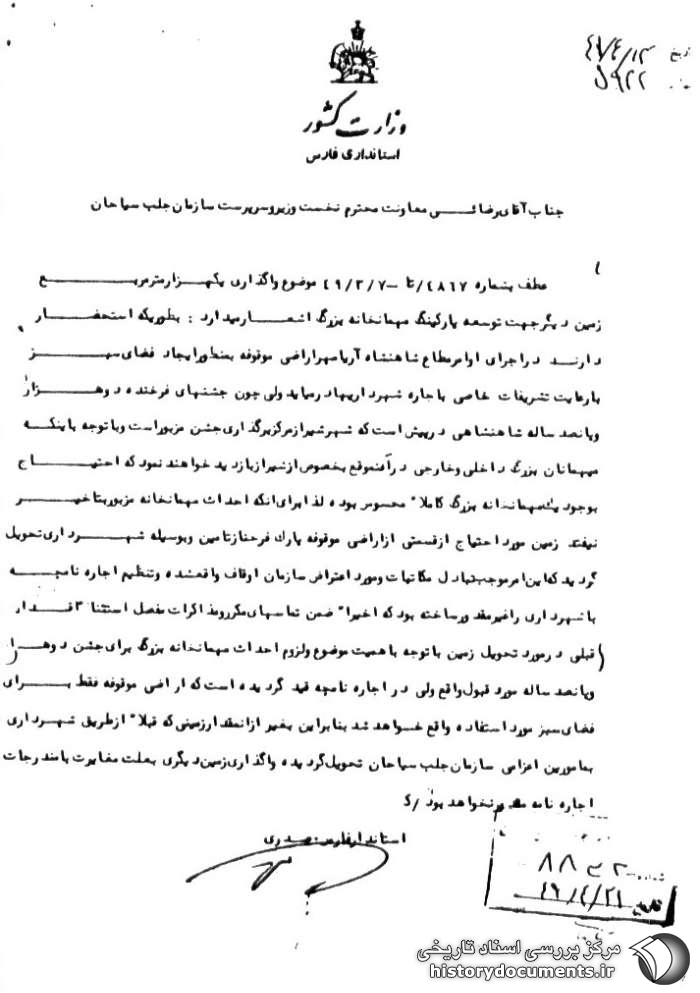 تاریخ ۴۹/۴/۱۳
۵۹۲۲
وزارت کشور
استانداری فارس
جناب آقای رضائی معاونت محترم نخست وزیر و سرپرست سازمان جلب سیاحان
عطف بشماره ۴۸۶۷/تا – ۴۹/۳/۷ موضوع واگذاری یکهزار مترمربع
زمین دیگر جهت توسعه پارکینگ مهمانخانه بزرگ اشعار میدارد : بطوریکه استحضار
دارند در اجرای اوامر مطاع شاهنشاه آریامهر اراضی موقوفه بمنظور ایجاد فضای سبز
با رعایت تشریفات خاصی با جاره شهرداریها در میاید ولی چون جشنهای فرخنده دو هزار
و پانصد ساله شاهنشاهی در پیش است که شهر شیراز مرکز برگذاری جشن مزبور است و با توجه باینکه
میهمانان بزرگ داخلی و خارجی در آنموقع بخصوص از شیراز بازدید خواهند نمود که احتیاج
بوجود یک مهمانخانه بزرگ کاملا" محسوس بوده لذا برای انکه احداث مهمانخانه مزبور بتاخیر
نیفتد زمین مورد احتیاج از قسمتی از اراضی موقوفه پارک فرحناز تامین و بوسیله شهرداری تحویل
گردید که این امر موجب تبادل مکاتبات و مورد اعتراض سازمان اوقاف واقعشده و تنظیم اجاره نامچه
با شهرداری را غیر مقدور ساخته بود که اخیرا" ضمن تماسهای مکرر و مذاکرات مفصل استثنائا" اقدار
قبلی در مورد تحویل زمین با توجه باهمیت موضوع و لزوم احداث مهمانخانه بزرگ برای جشن دو هزار
و پانصد ساله مورد قبول واقع ولی در اجاره نامچه قید گردیده است که اراضی موقوفه فقط برای
فضای سبز مورد استفاده واقع خواهد شد بنابراین بغیر از انمقدار زمینی که قبلا" از طریق شهرداری
بمامورین اعزامی سازمان جلب سیاحان تحویل گردیده واگذاری زمین دیگری بعلت مغایرت با مندرجات
اجاره نامه مقدور نخواهد بود /ک
استاندار فارس . صدری
شماره
تاریخ ۴۹/۴/۲۱
مرکز بررسی اسناد تاریخی
historydocuments.ir